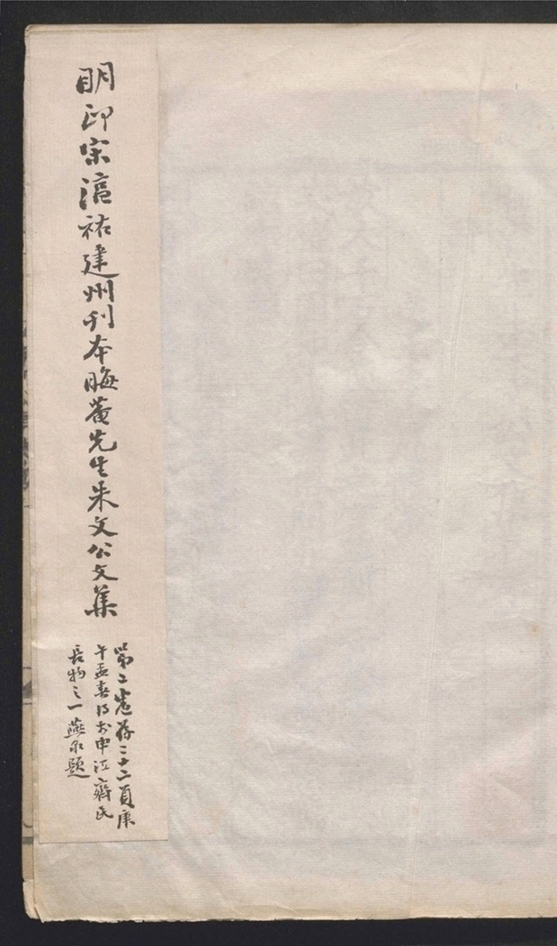 明印宋淳祐建州刊本晦菴先生朱文公文集
第二卷存三十二頁庚
午孟春得於申江齊氏
長物之一燕永題